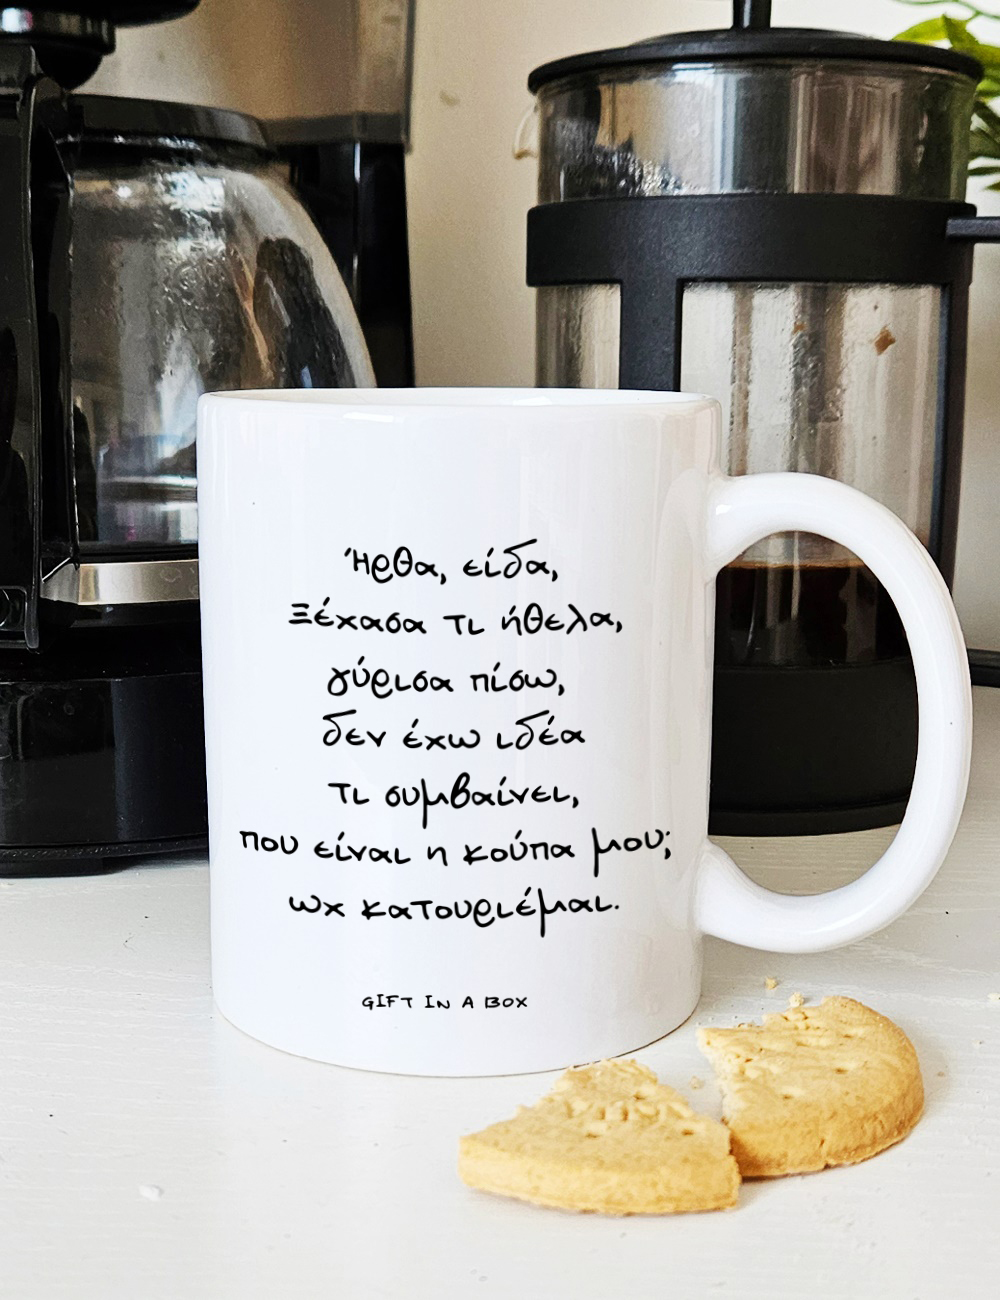 Ήρθα, είδα,
Ξέχασα τι ήθελα,
γύρισα πίσω,
δεν έχω ιδέα
τι συμβαίνει,
που είναι η κούπα μου;
ωχ κατουριέμαι.
GIFT IN A BOX